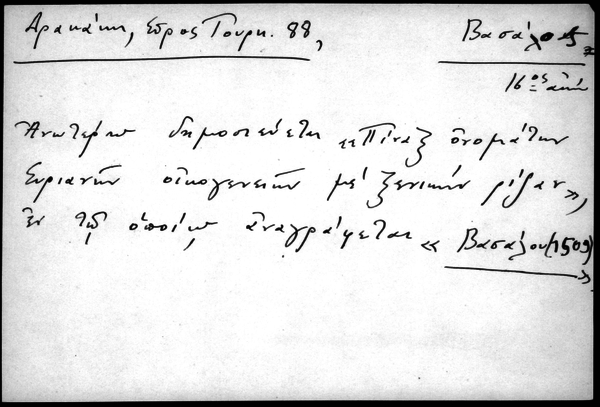 Δρακάκη, Σῦρος Τουρκ. 88, Βασάλος
16ος αἰών
Ἀνωτέρω δημοσιεύεται «Πίναξ ὀνομάτων
Συριανῶν οἰκογενειῶν μέ ξενικήν ρίζαν»,
ἐν τῷ ὁποίῳ ἀναγράφεται «Βασάλου (1509)
»